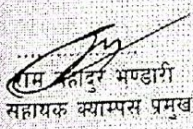 राम बहादुर भण्डारी
सहायक क्याम्पस प्रमुख